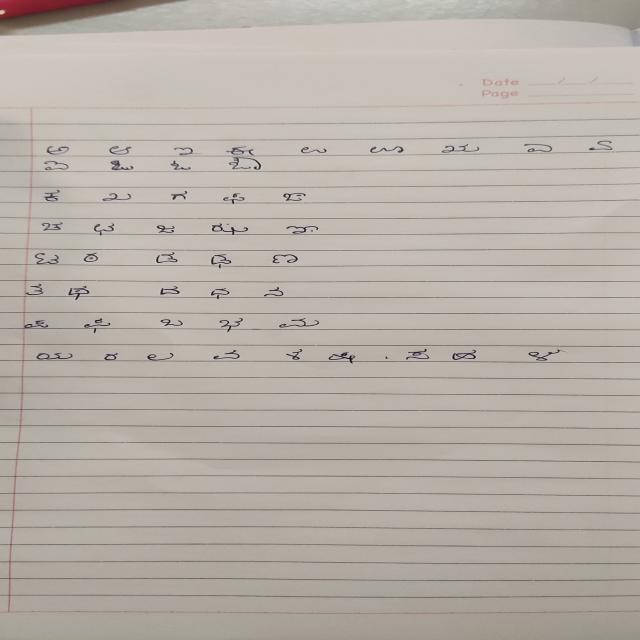 Date / /
Page
ಅ ಆ ಇ ಈ ಉ ಊ ಋ ಎ ಏ
ಐ ಒ ಓ ಔ
ಕ ಖ ಗ ಘ ಙ
ಚ ಛ ಜ ಝ ಞ
ಟ ಠ ಡ ಢ ಣ
ತ ಥ ದ ಧ ನ
ಪ ಫ ಬ ಭ ಮ
ಯ ರ ಲ ವ ಶ ಷ . ಸ ಹ ಳ